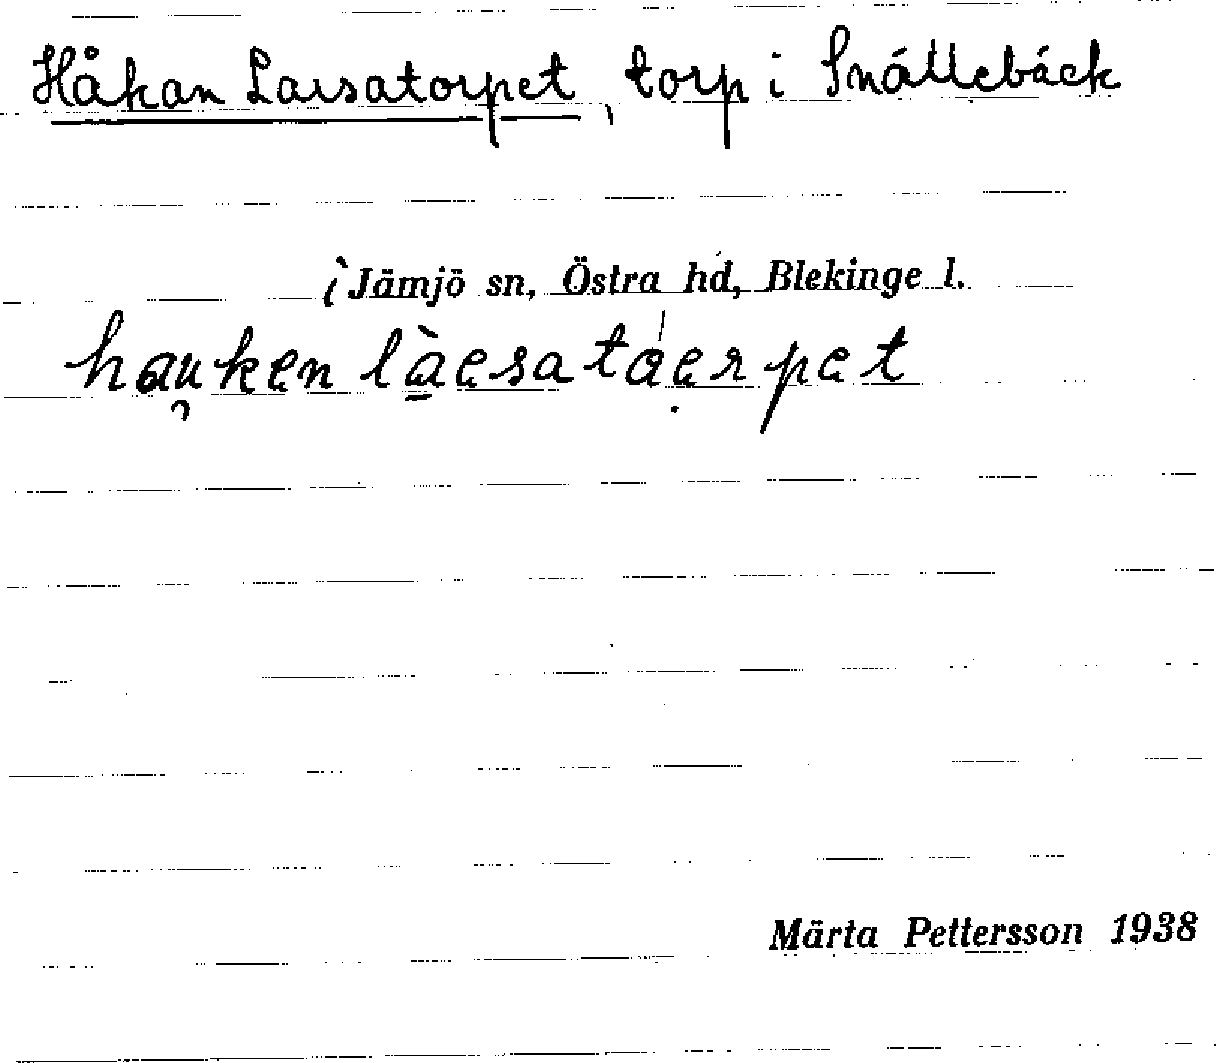 Håkan Larsatorpet, torp i Snällebäck
i Jämjö sn, Östra hd, Blekinge l.
hau̯ken là̱esatáerpet
Märta Pettersson 1938